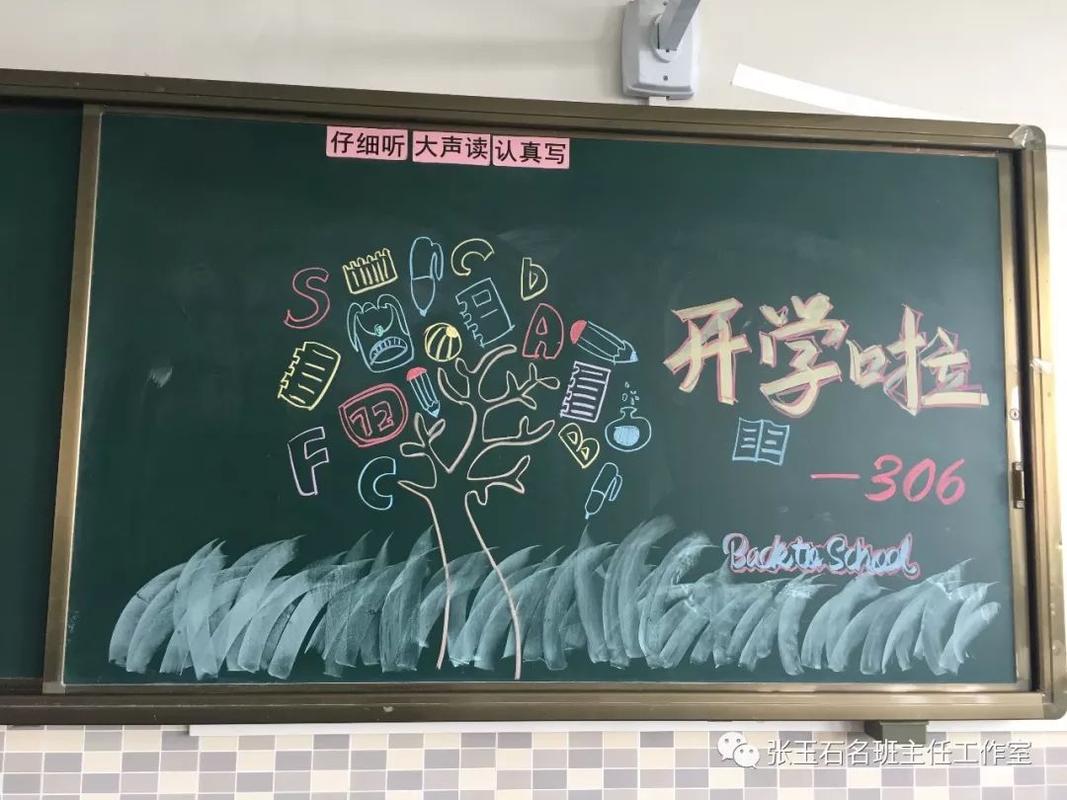 仔细听 大声读 认真写
S
C
D
A
12
B
F
C
开学啦
—306
Back to School
张玉石名班主任工作室